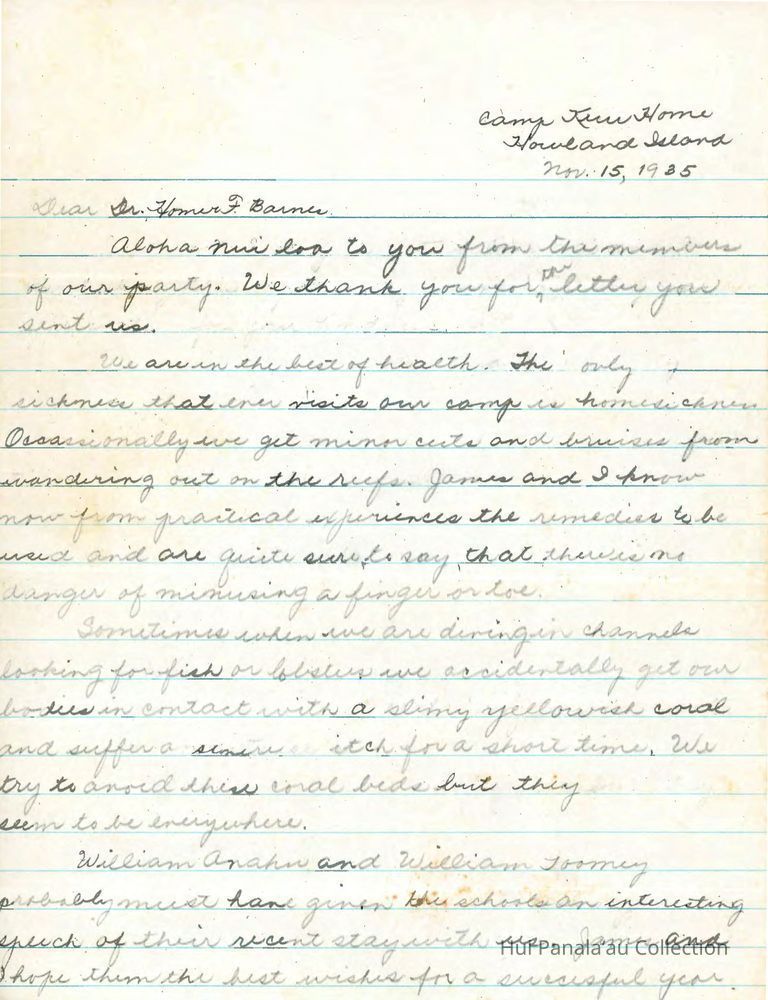 Camp Kuu Home
Howland Island
Nov. 15, 1935
Dear Dr. Homer F. Barnes.
Aloha nui loa to you from the members
of our party. We thank you for the letter you
sent us.
We are in the best of health. The only
sickness that ever visits our camp is homesickness
Occassionally we get minor cuts and bruises from
wandering out on the reefs. James and I know
now from practical experiences the remedies to be
used and are quite sure, to say, that there is no
danger of minusing a finger or toe.
Sometimes when we are diving in channels
looking for fish or lobsters we accidentally get our
bodies in contact with a slimy yellowish coral
and suffer a severe itch for a short time. We
try to avoid these coral beds but they
seem to be everywhere.
William Anahu and William Toomey
probably must have given the schools an interesting
speech of their recent stay with us. James and
I hope them the best wishes for a succesful year.
Hui Panalāʻau Collection